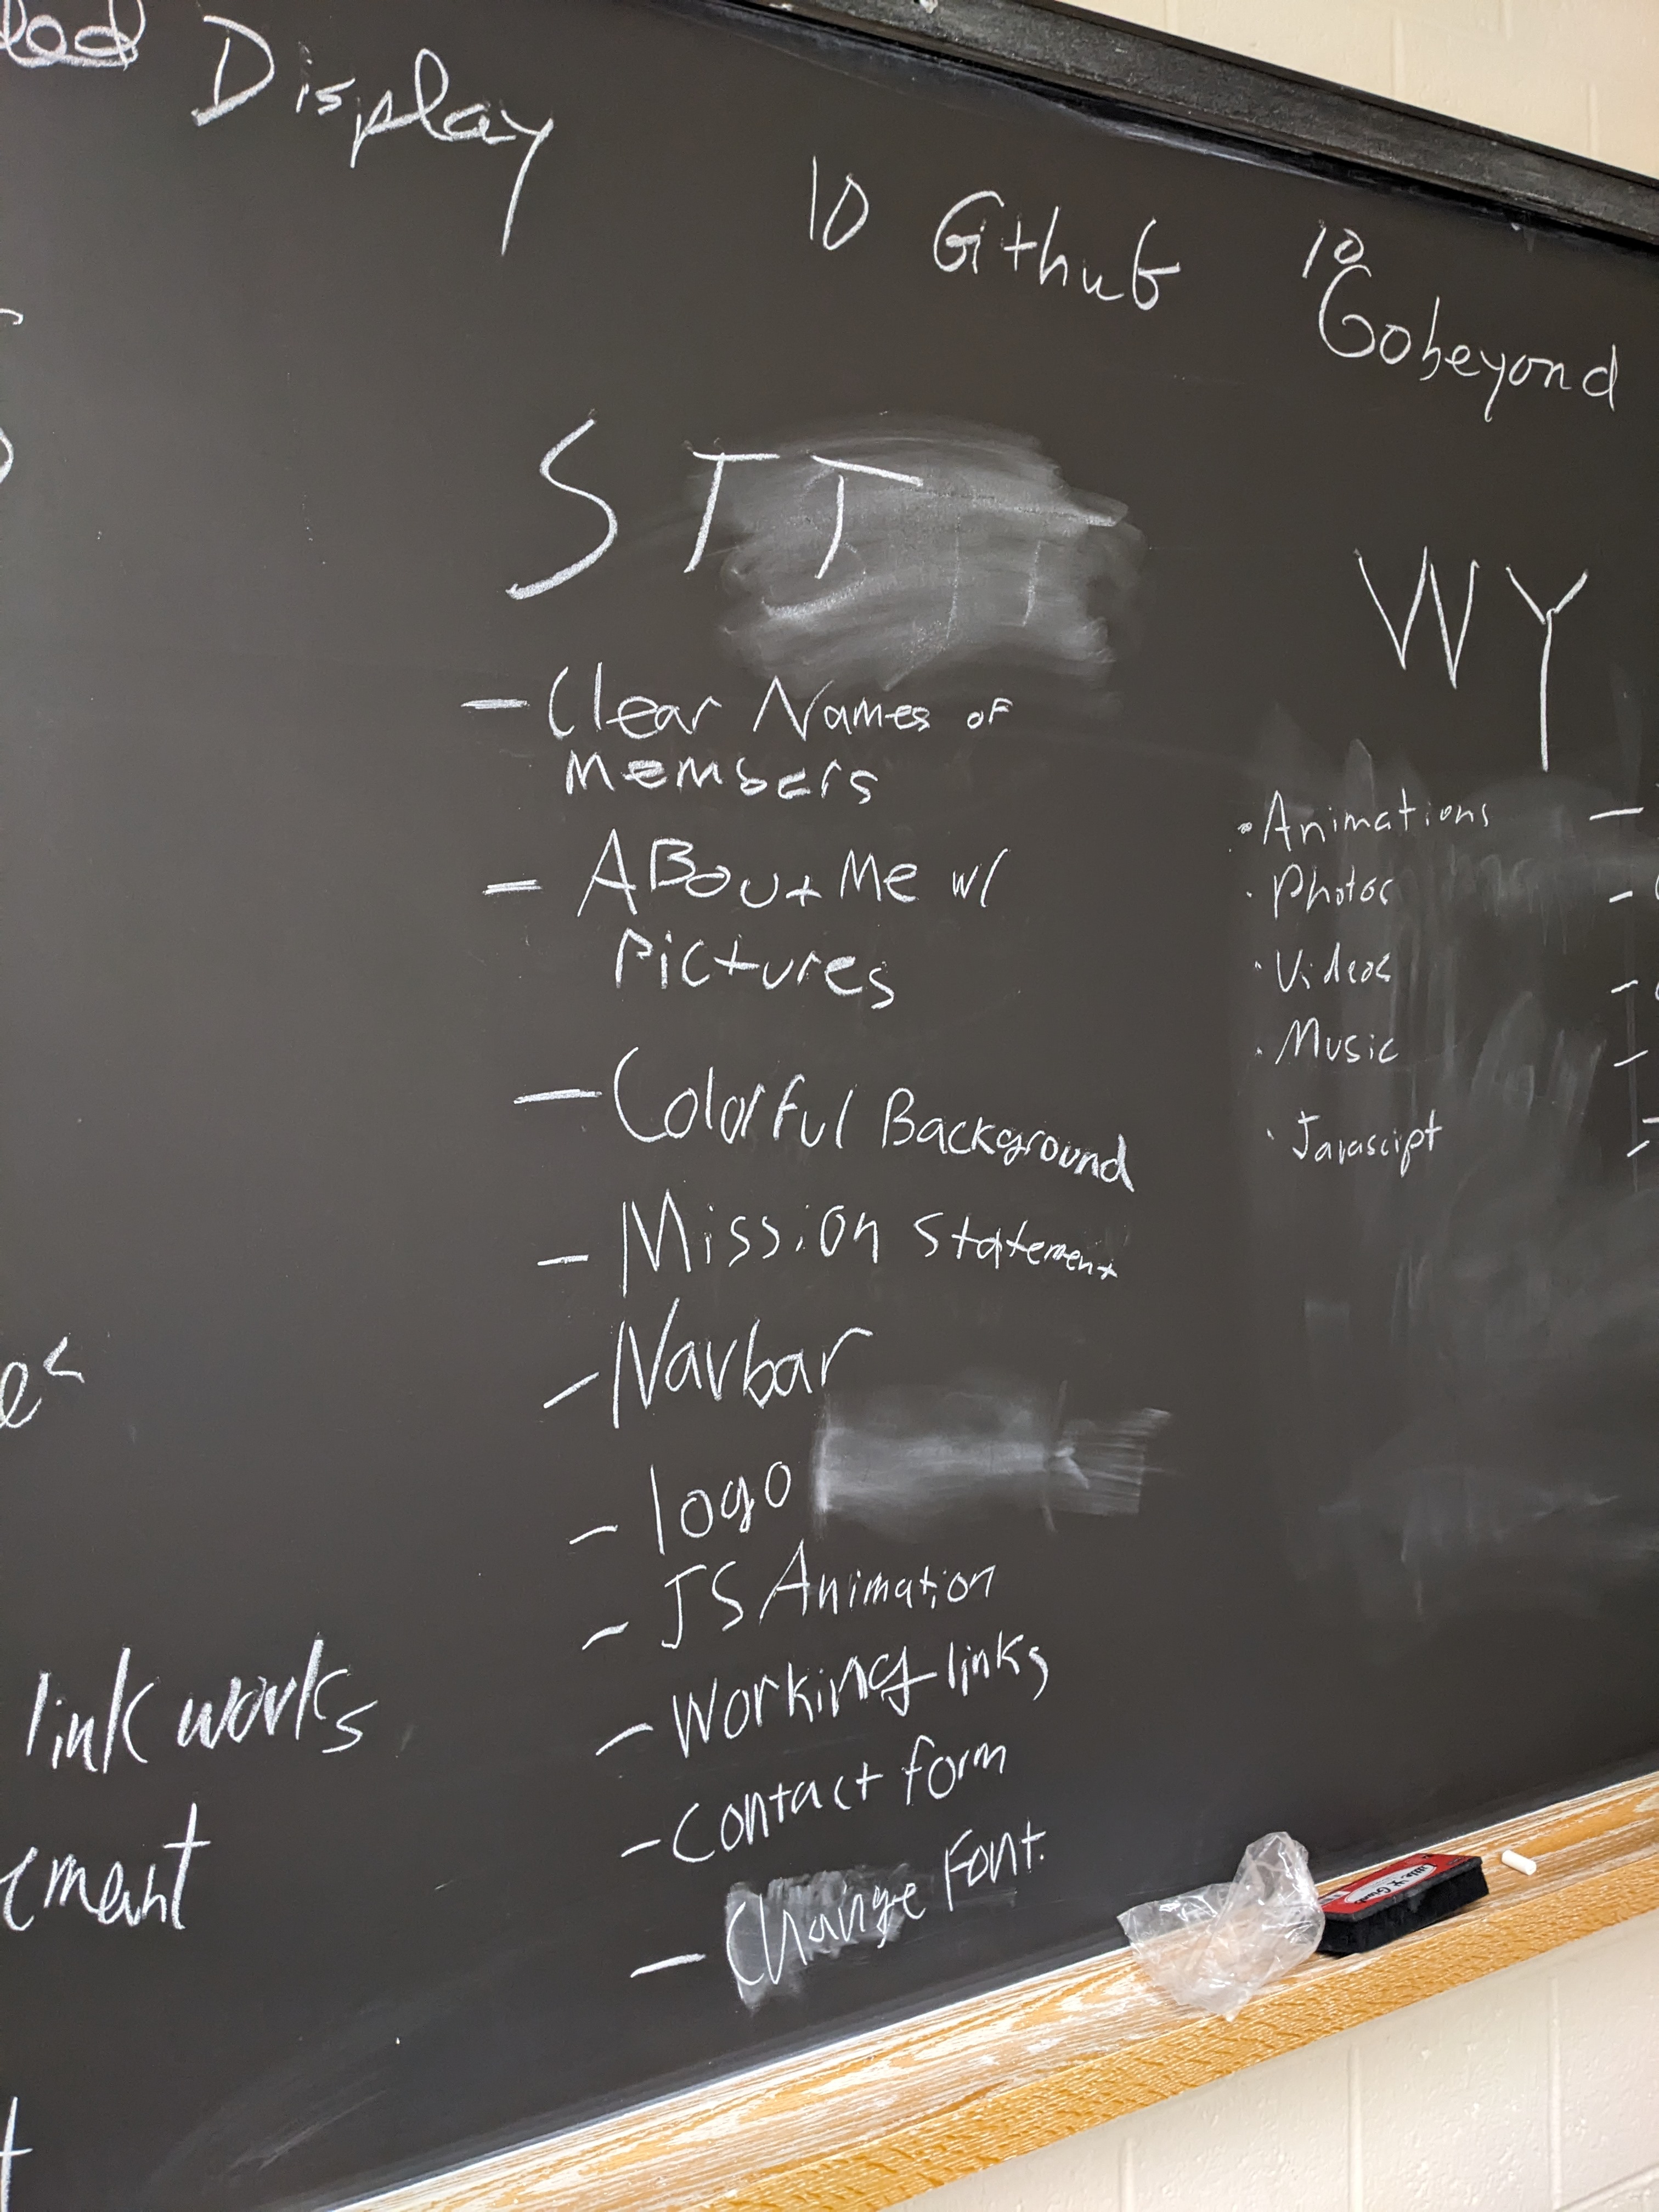 Display
10 Github
10
Gobeyond
STT
WY
- Clear Names of
members
- ABout Me w/
Pictures
- Colorful Background
- Mission Statement
- Navbar
- logo
- JS Animation
- Working links
- Contact form
- Change Font.
· Animations
· Photos
· Videos
· Music
· Javascipt
link works